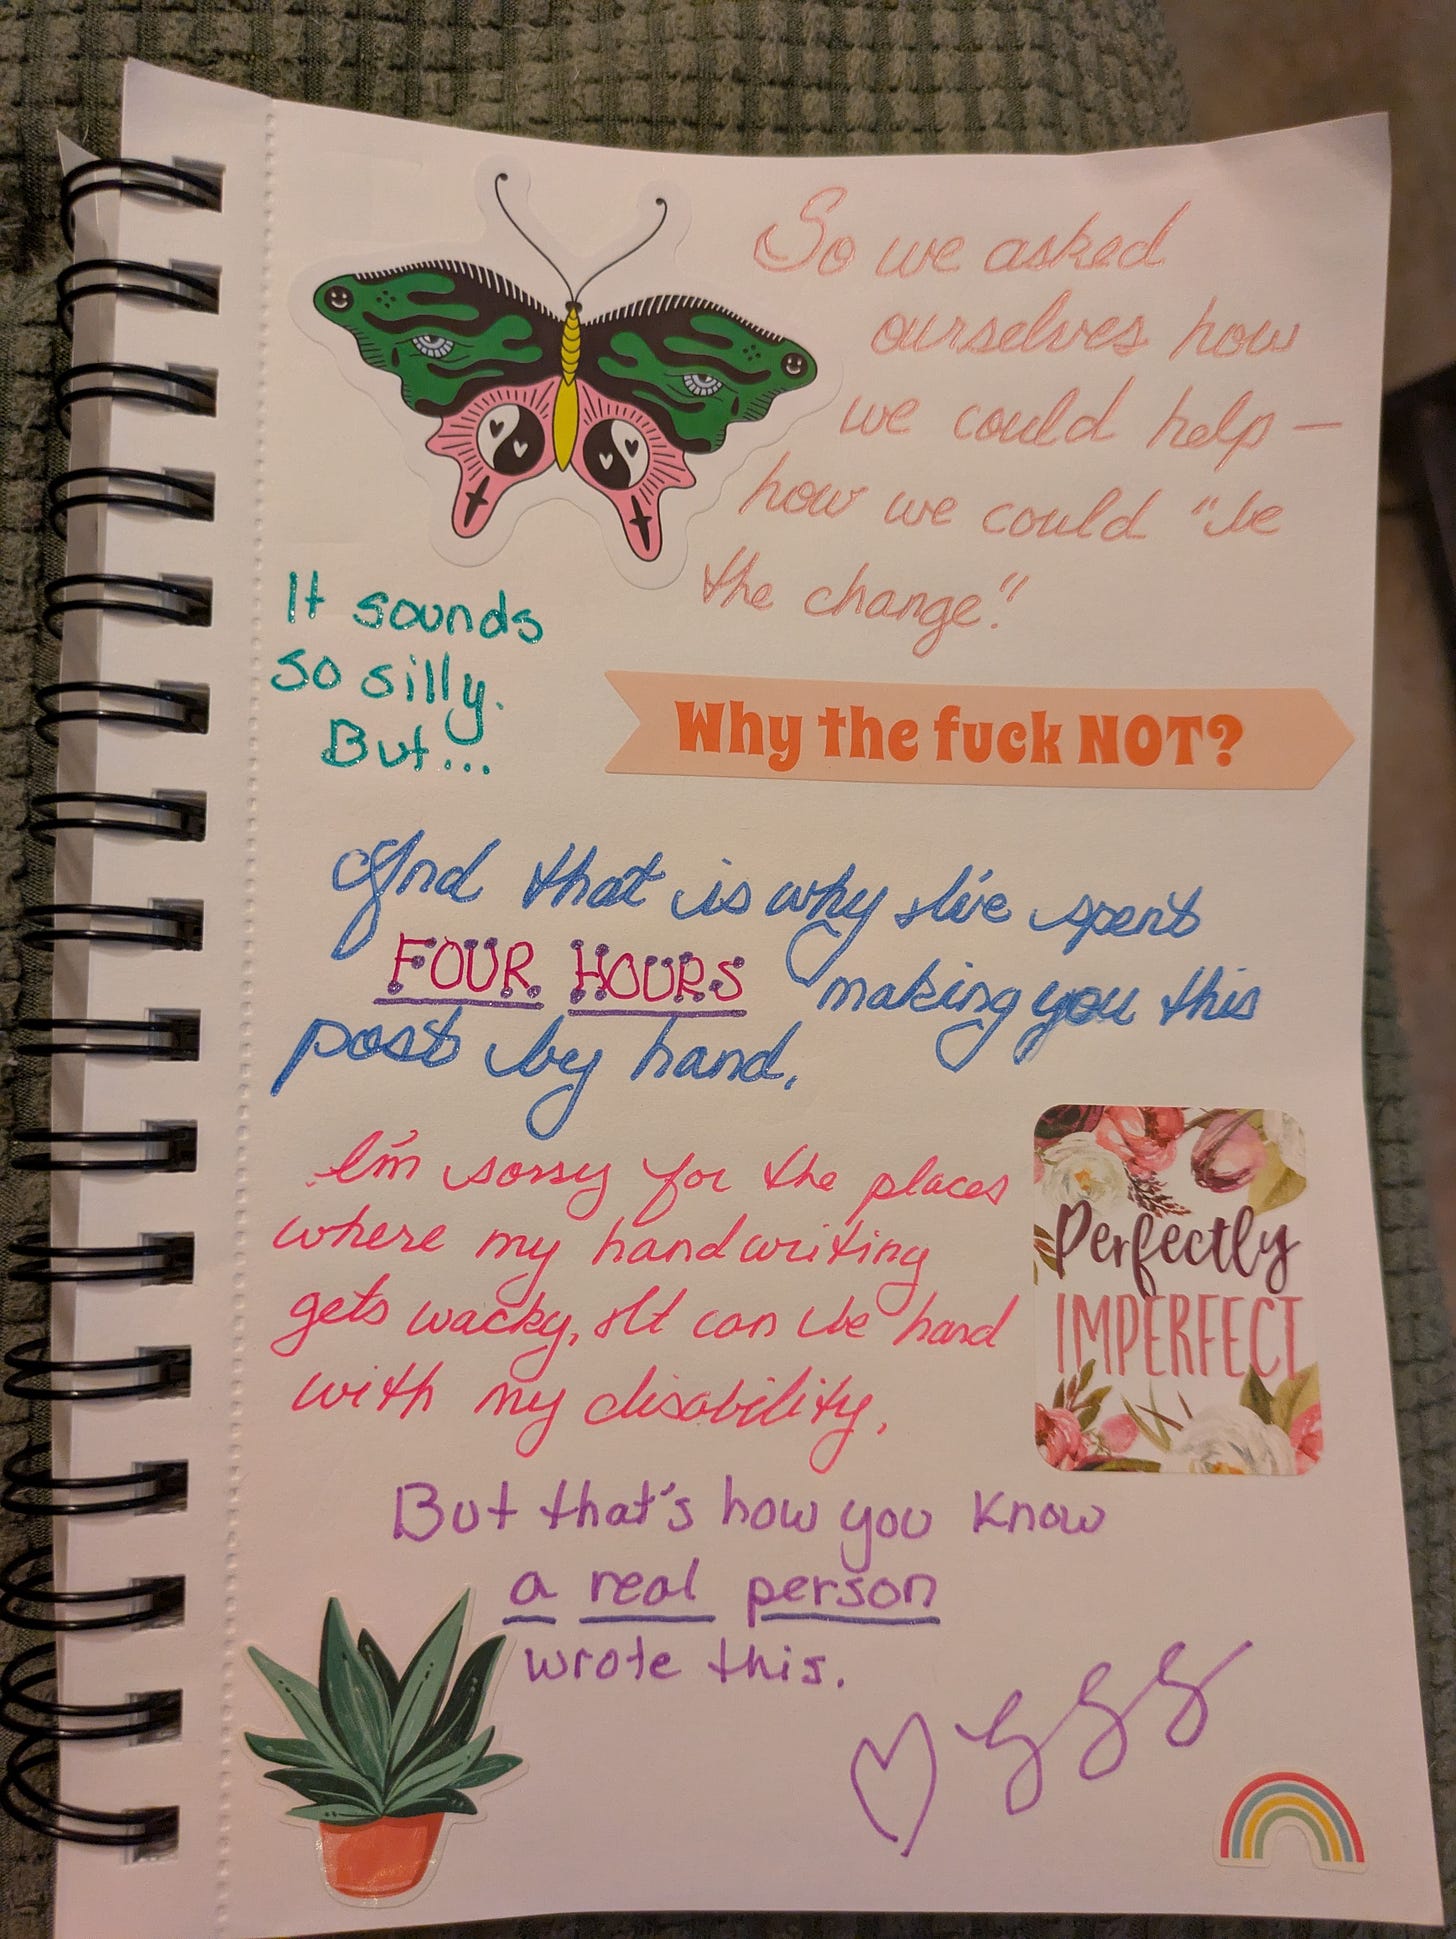 So we asked
ourselves how
we could help —
how we could "be
the change."
It sounds
so silly.
But...
Why the fuck NOT?
And that is why I've spent
FOUR HOURS making you this
post by hand.
I'm sorry for the places
where my handwriting
gets wacky, It can be hard
with my disability.
Perfectly
IMPERFECT
But that's how you know
a real person
wrote this.